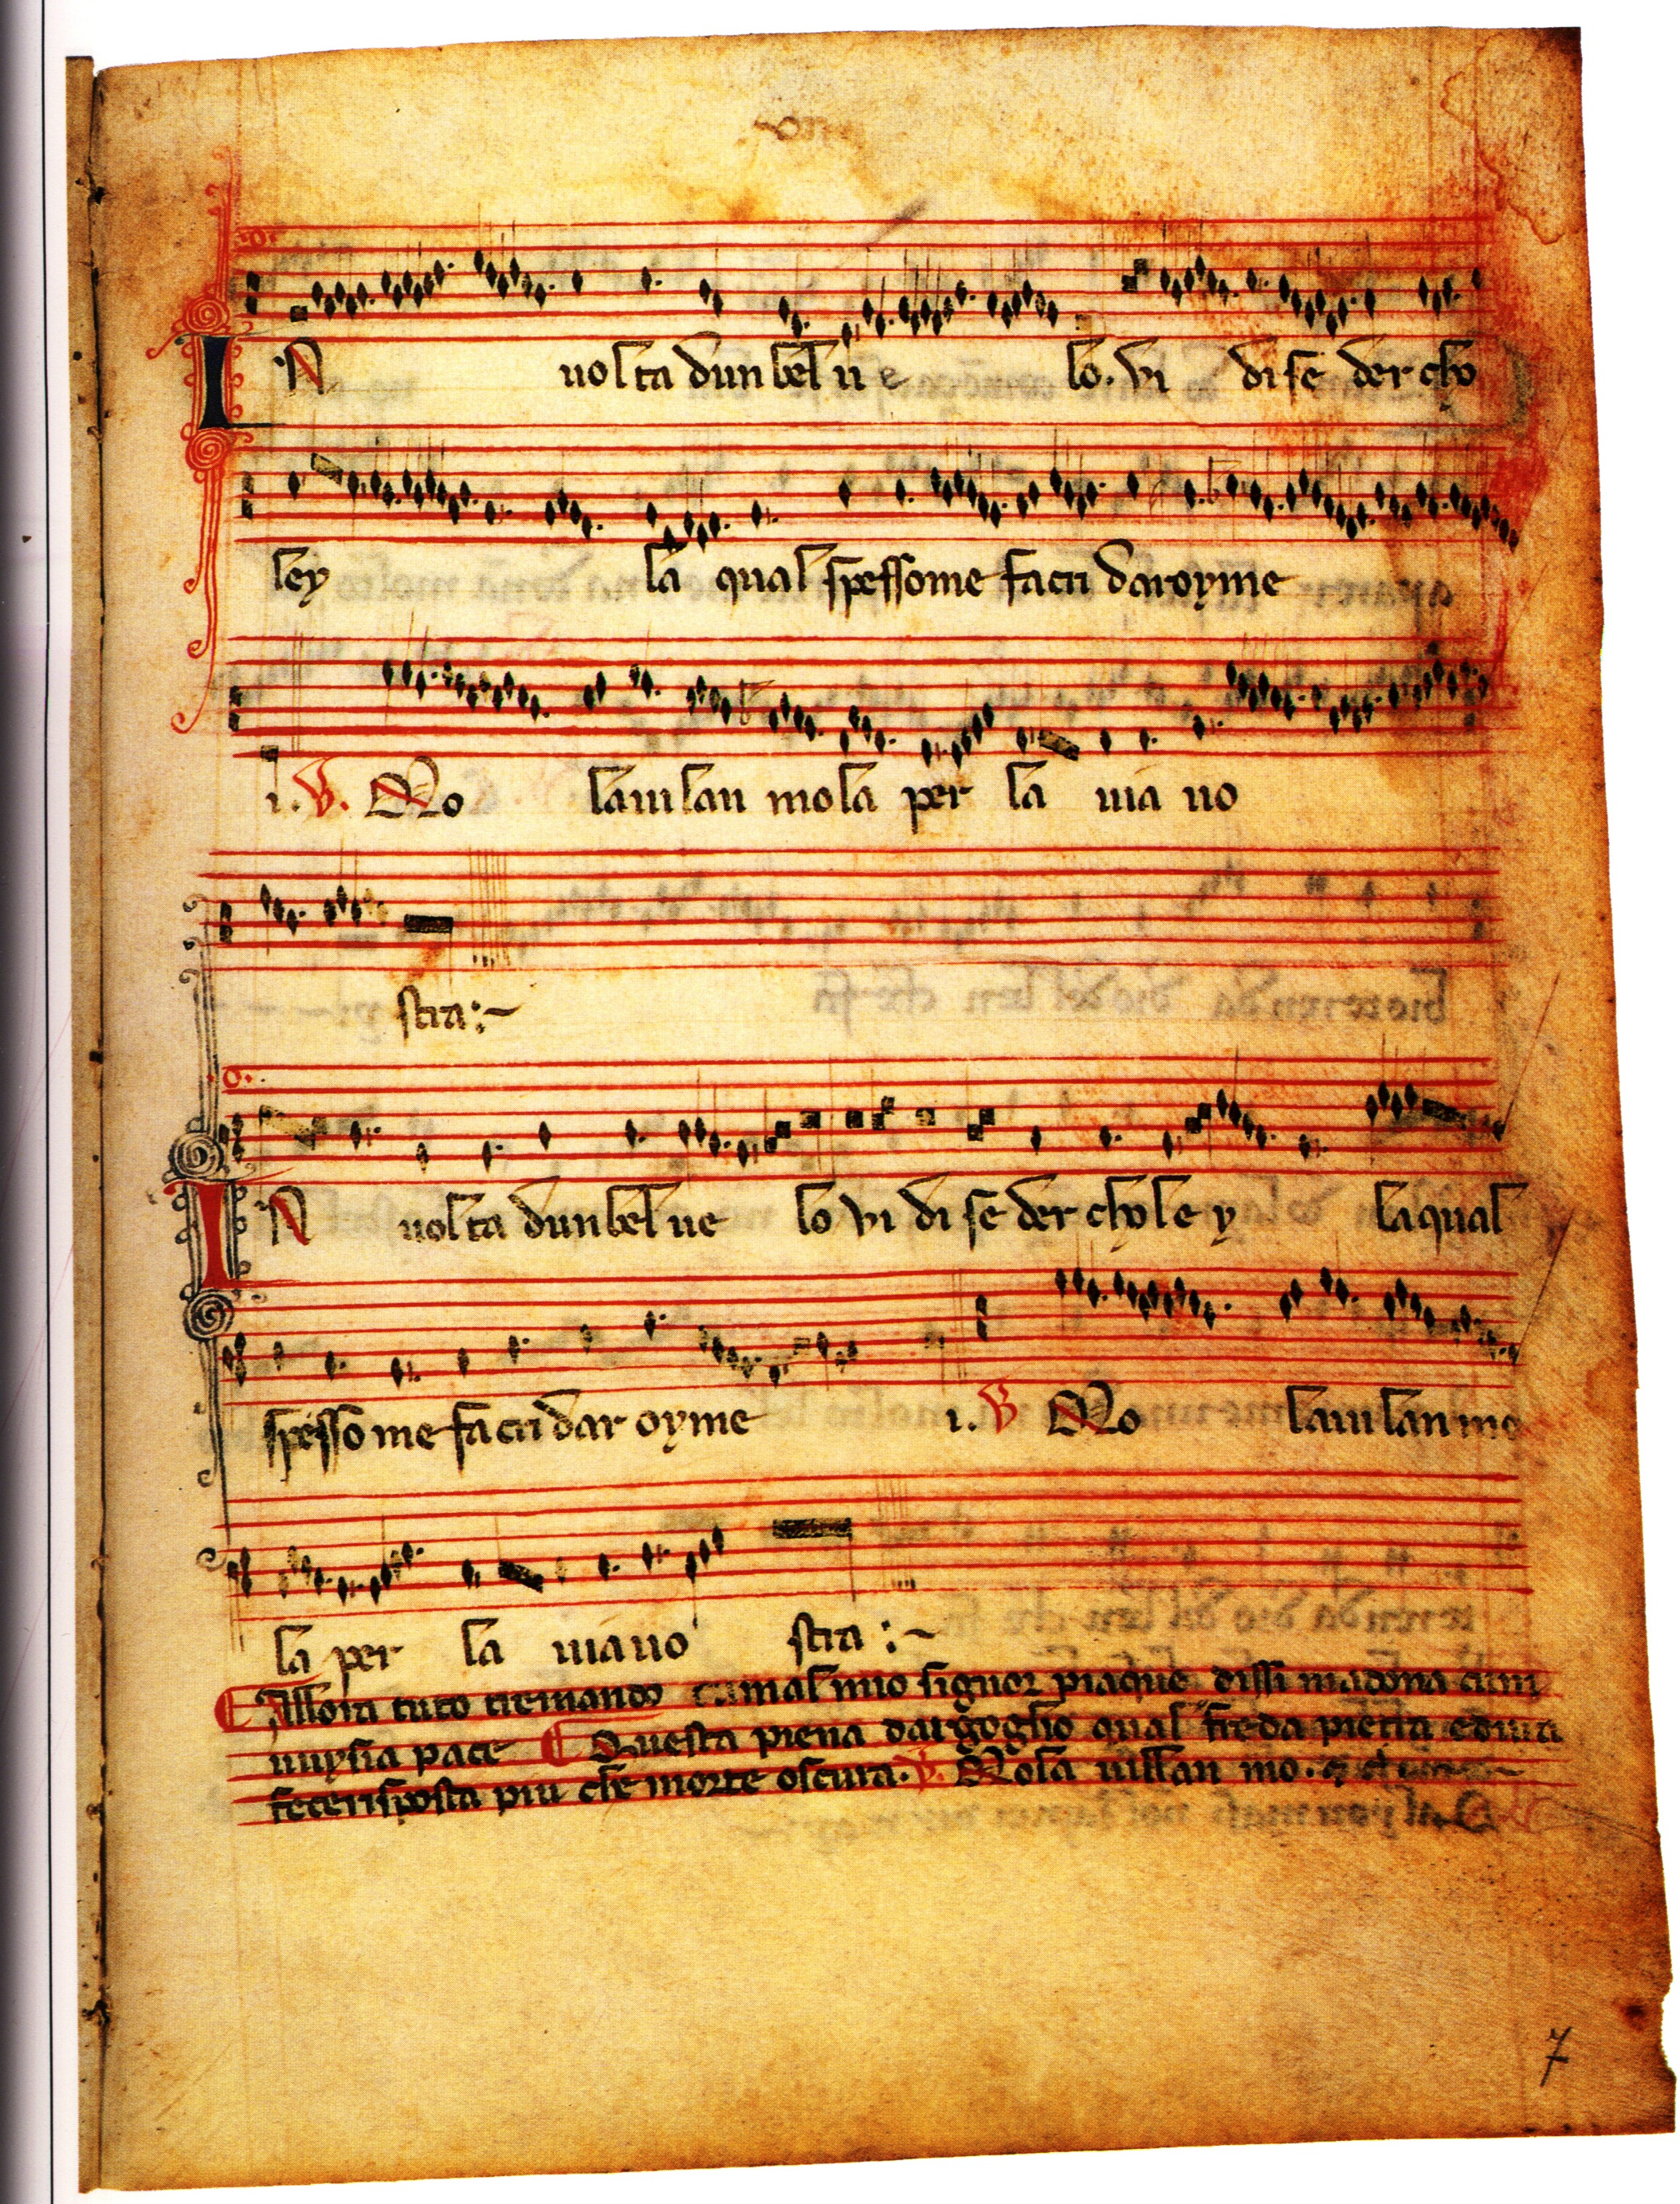 .o.
IN uolta dun bel ue lo. vi di se der cho
ley la qual spessome facti daroyme
i. V. No lauilan mo la per la uia uo
stra :~
.o.
IN uolta dun bel ue lo vi di se der cho le y la qual
spesso me facti dar oyme i. V No lauilan mo
la per la uia uo stra :~
Allora tuto tremando mal mio signor piaque dissi madona cum
uuy sia pace Questa piena dargoglio qual freda pietra e dura
fece risposta piu che morte oscura. V. No la uillan mo.
7